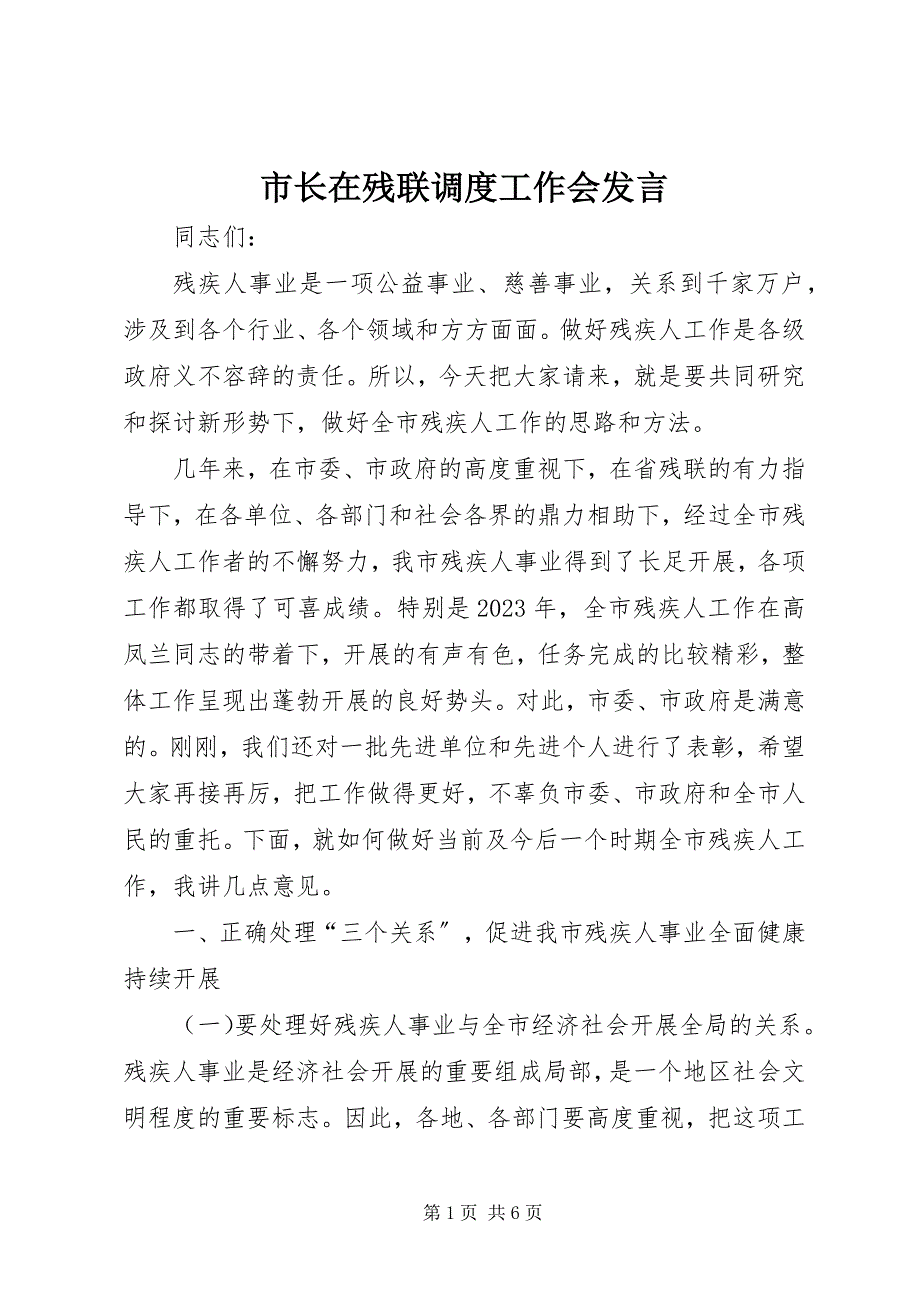 市长在残联调度工作会发言
同志们：
残疾人事业是一项公益事业、慈善事业，关系到千家万户，
涉及到各个行业、各个领域和方方面面。做好残疾人工作是各级
政府义不容辞的责任。所以，今天把大家请来，就是要共同研究
和探讨新形势下，做好全市残疾人工作的思路和方法。
几年来，在市委、市政府的高度重视下，在省残联的有力指
导下，在各单位、各部门和社会各界的鼎力相助下，经过全市残
疾人工作者的不懈努力，我市残疾人事业得到了长足开展，各项
工作都取得了可喜成绩。特别是 2023 年，全市残疾人工作在高
凤兰同志的带着下，开展的有声有色，任务完成的比较精彩，整
体工作呈现出蓬勃开展的良好势头。对此，市委、市政府是满意
的。刚刚，我们还对一批先进单位和先进个人进行了表彰，希望
大家再接再厉，把工作做得更好，不辜负市委、市政府和全市人
民的重托。下面，就如何做好当前及今后一个时期全市残疾人工
作，我讲几点意见。
一、正确处理“三个关系〞，促进我市残疾人事业全面健康
持续开展
（一）要处理好残疾人事业与全市经济社会开展全局的关系。
残疾人事业是经济社会开展的重要组成局部，是一个地区社会文
明程度的重要标志。因此，各地、各部门要高度重视，把这项工
第 1 页 共 6 页